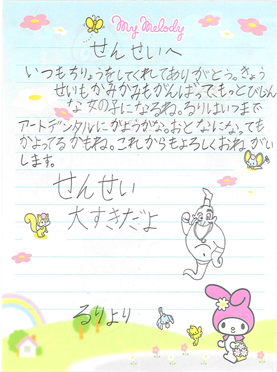 My Melody
せんせいへ
いつもちりょうをしてくれてありがとう。きょう
せいもかみかみもがんばってもっとびじん
な女の子になるね。るりはいつまで
アートデンタルにかようかな。おとなになっても
かよってるかもね。これからもよろしくおねがい
します。
せんせい
大すきだよ
るりより